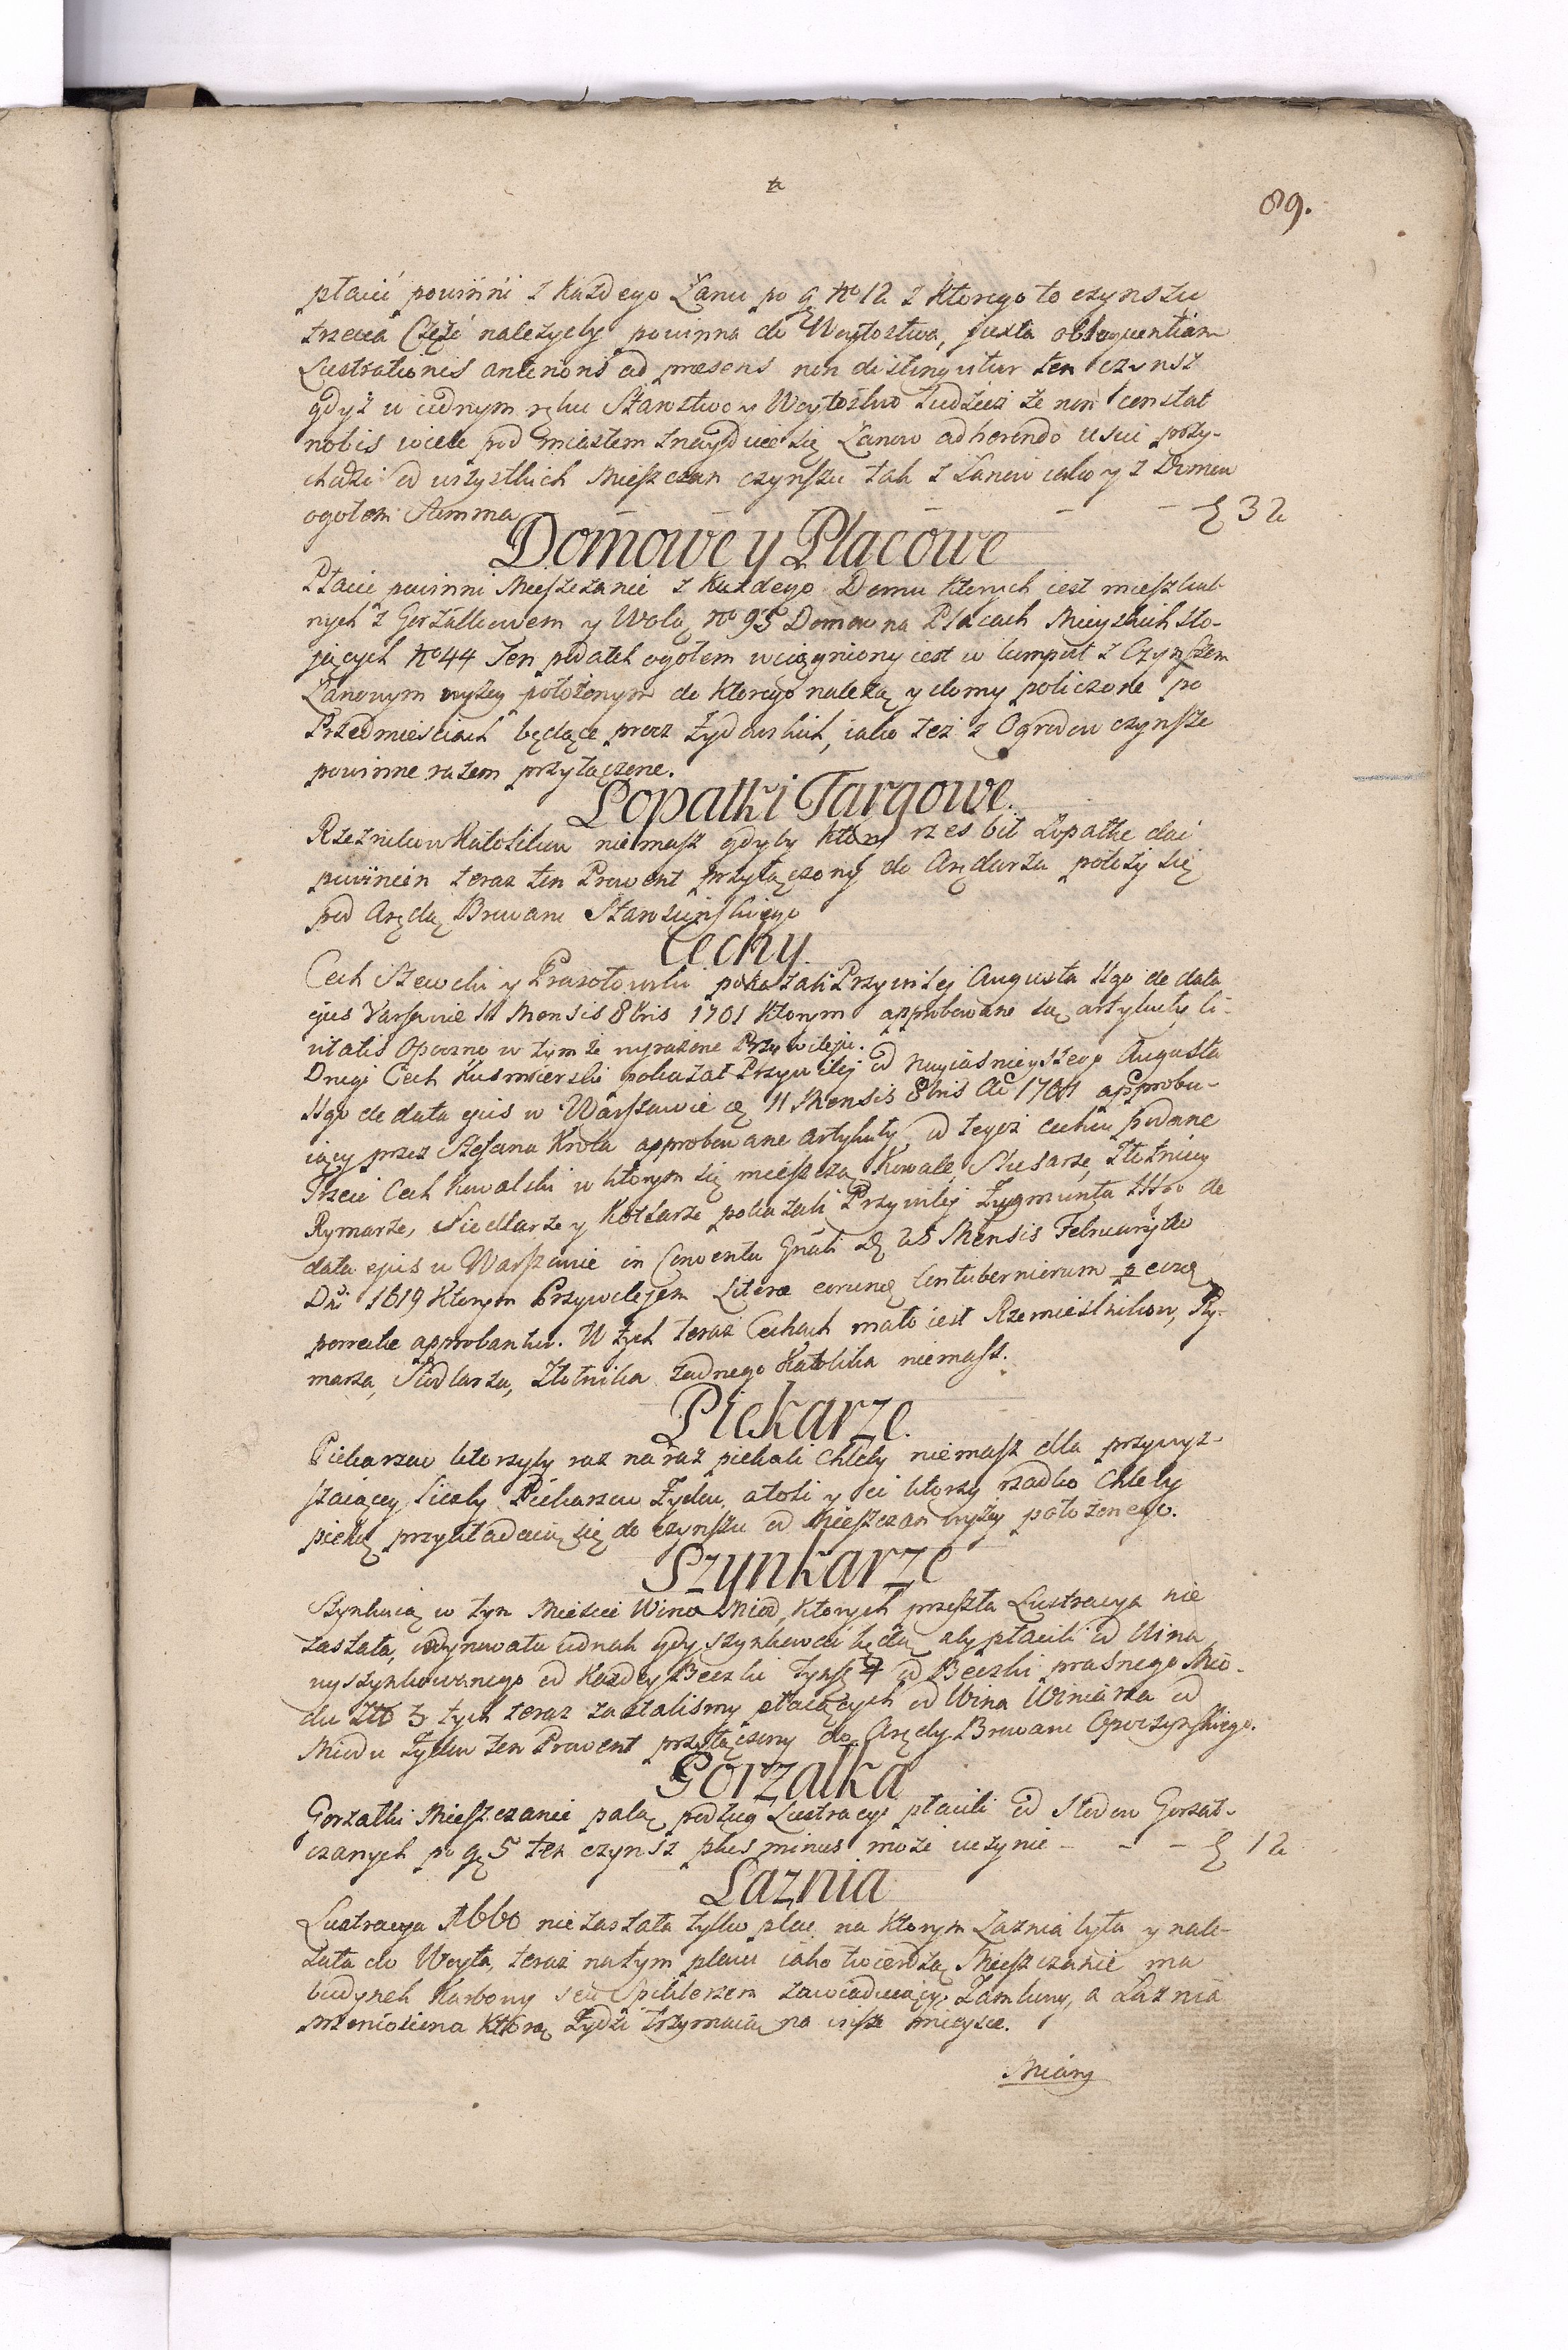 89.
płacić powinni z Każdego Łanu po g. No 12 z Ktorego to czynszu
trzecia Część należyćby powinna do Woytostwa, juxta obloquentiam
Lustrationis anterioris ad præsens non distinguitur ten czynsz
gdyż w iednym ręku Starostwo y Woytostwo tudzież że non constat
nobis wiele pod miastem znayduie się Łanow adhærendo usui przy-
chodzi od wszystkich Mieszczan czynszu tak z Łanow iako y z Domow
ogołem Summa - - - - 32
Domowe y Placowe
Płacić powinni Mieszczanie z Każdego Domu Ktorych iest mieszkal
nych z Gorzałkowem y Wolą No 95 Domow na Placach Mieyskich sto-
jących No 44 Ten podatek ogołem wciągniony iest w komput z Czynszem
Łanowym wyżey położonym do Ktorego należą y domy policzone po
Przedmieściach będące procz Żydowskich, iako też z Ogrodow czynsze
powinne razem przyłączone.
Łopatki Targowe.
Rzeznikow Katolikow niemasz gdyby Ktory rzeź bił Łopatkę dać
powinien teraz ten Prowent przyłączony do Arędarza położy się
pod Arędą Browaru Starościńskiego
Cechy.
Cech Szewcki y Prasołowski pokazali Przywiley Augusta IIgo de data
ejus Varsaviæ 11 Mensis 8bris 1701 Ktorym approbowane są artykuły Ci-
vitatis Opoczno w tymże wyrażone Przywileju.
Drugi Cech Kusnierski pokazał Przywiley od Nayiaśnieyszego Augusta
IIgo de data ejus w Warszawie 11 Mensis 8bris Ao 1701 approbu-
iący przez Stefana Krola approbowane artykuły od tegoż cechu podane
Trzeci Cech Kowalski w ktorym się mieszczą Kowale, Slusarze, Złotnicy
Rymarze, Siodlarze y Kotlarze pokazali Przywiley Zygmunta IIIgo de
data ejus w Warszawie in Conventu Gnāli 25 Mensis Februarij Ao
Dni 1619 Ktorym Przywilejem Literæ earund Contuberniorum p eosd
porrectæ approbantur. W tych teraz Cechach mało iest Rzemieslnikow, Ry-
marza, Siodlarza, Złotnika żadnego Katolika niemasz.
Piekarze.
Piekarzow ktorzyby raz na raz piekali chleby niemasz dla przewyż-
szaiącey liczby Piekarzow Żydow, atoli y ci ktorzy rzadko Chleby
pieką przykładaią się do czynszu od Mieszczan wyżey położonego.
Szynkarze
Szynkuią w tym Mieście Wino Miod, Ktorych przeszła Lustracya nie
zastała, obdynowała iednak gdy szynkować będą aby płacili od Wina
wyszynkowanego od Każdey Beczki Tynf 4 od Beczki praśnego Mio-
du Złł 3 tych teraz zastaliśmy płacących od Wina Winiarza od
Miodu Żydow ten Prowent przyłączony do Arędy Browaru Opoczyńskiego.
Gorzałka
Gorzałki Mieszczanie palą podług Lustracyi płacili od Słodow Gorzał-
czanych po g 5 ten czynsz plus minus może uczynić - - - 12
Łaznia
Lustracya 1660 nie zastała tylko plac na Ktorym Łaznia była y nale-
żała do Woyta, teraz na tym placu iako twierdzą Mieszczanie ma
budynek Karbowy seu Spichlerzem zawiaduiący Zamkowy, a Łaznia
przeniesiona Ktorą Żydzi trzymaią na insze mieysce.
Miary